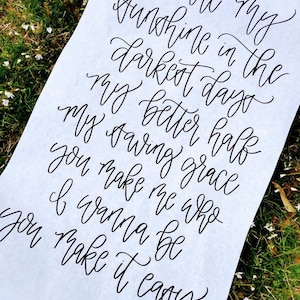 my
sunshine in the
darkest days
my better half
my saving grace
you make me who
I wanna be
you make it easy